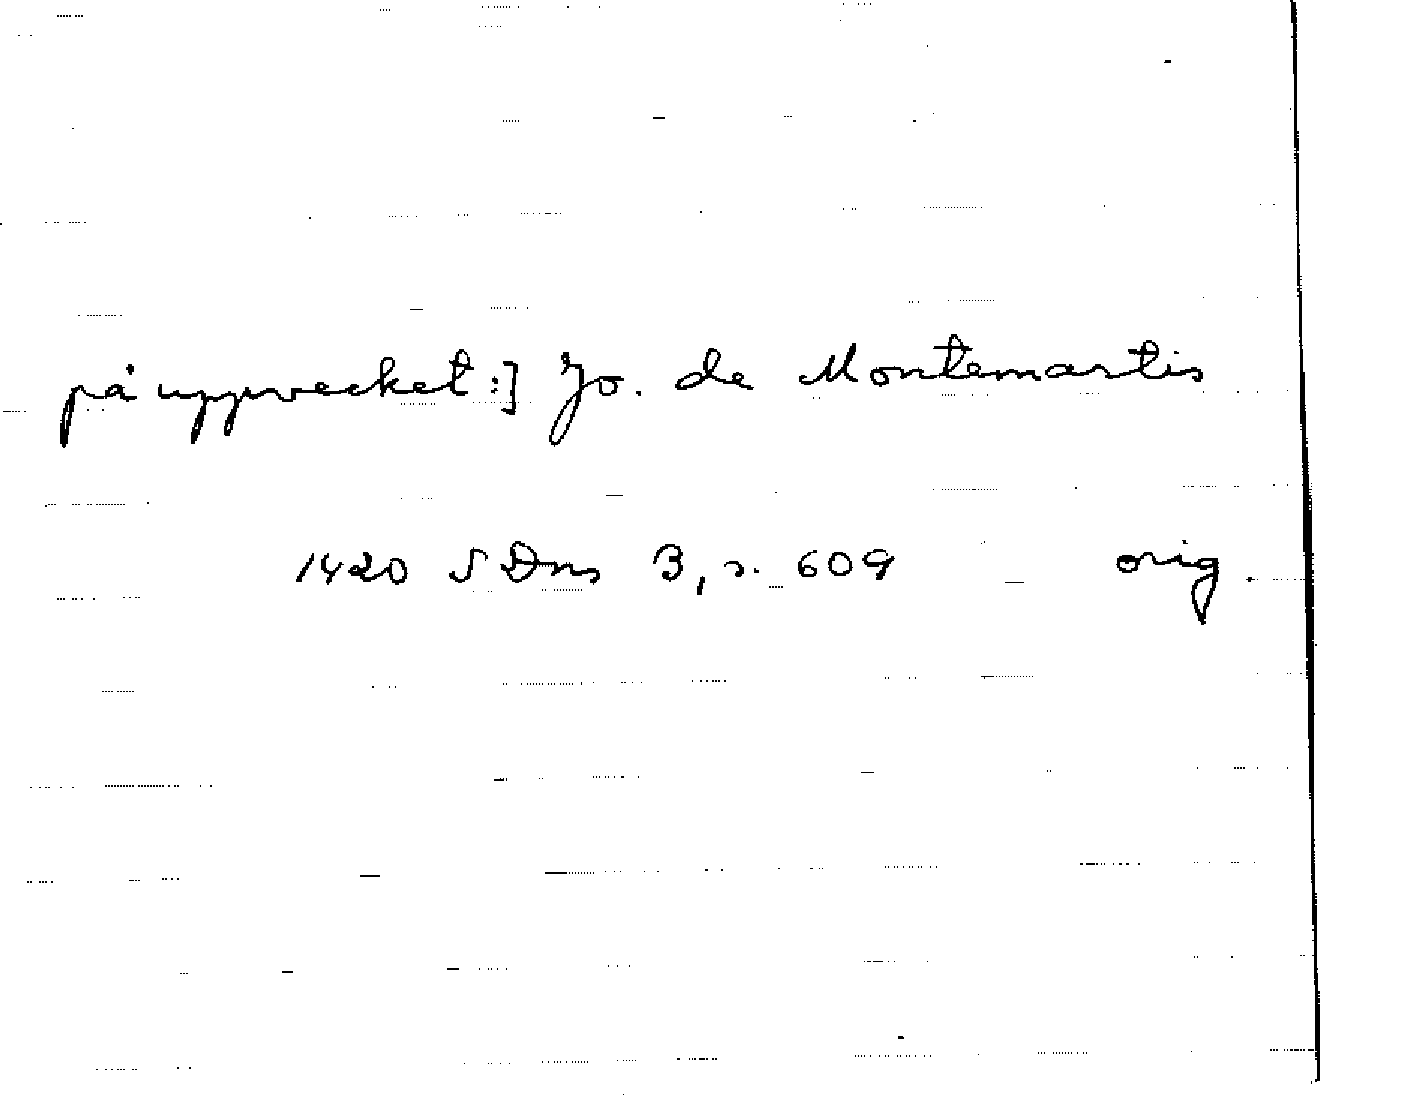 på uppvecket:] Jo. de Montemartis
1420 SDns 3, s. 609 orig.